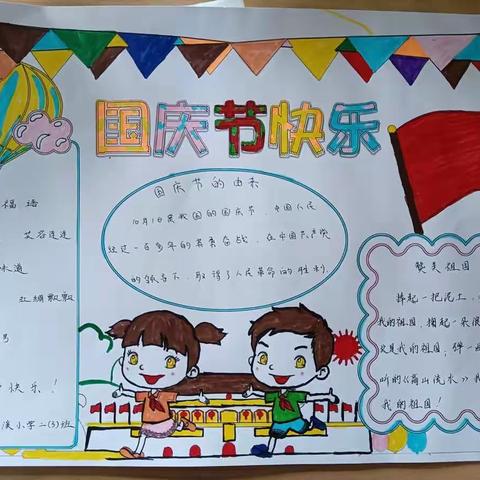 国庆节快乐
福语
笑容连连
红绸飘飘
快乐！
溪小学二(3)班
国庆节的由来
10月1日是我国的国庆节，中国人民
经过一百多年的英勇奋战，在中国共产党
的领导下，取得了人民革命的胜利.
赞美祖国
捧起一把泥土，
我的祖国，掬起一朵浪
又是我的祖国，弹一
听的《高山流水》我
我的祖国！